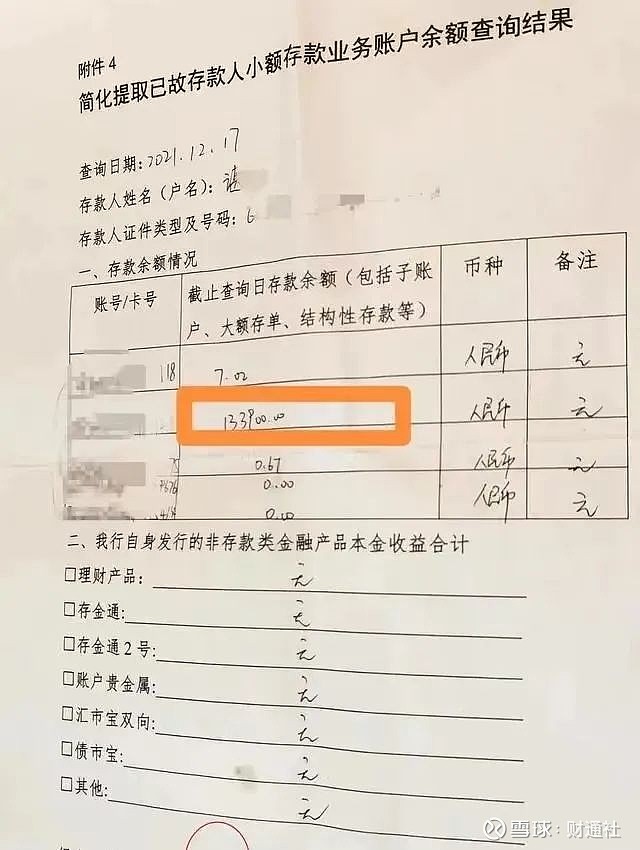 附件4
简化提取已故存款人小额存款业务账户余额查询结果
查询日期:2021.12.17
存款人姓名(户名):
存款人证件类型及号码:6
一、存款余额情况
账号/卡号 截止查询日存款余额(包括子账户、大额存单、结构性存款等) 币种 备注
118 7.02 人民币 无
133900.00 人民币 无
75 0.67 人民币 无
7676 0.00 人民币 无
0.00
二、我行自身发行的非存款类金融产品本金收益合计
□理财产品: 无
□存金通: 无
□存金通2号: 无
□账户贵金属: 无
□汇市宝双向: 无
□债市宝: 无
□其他: 无
雪球:财通社